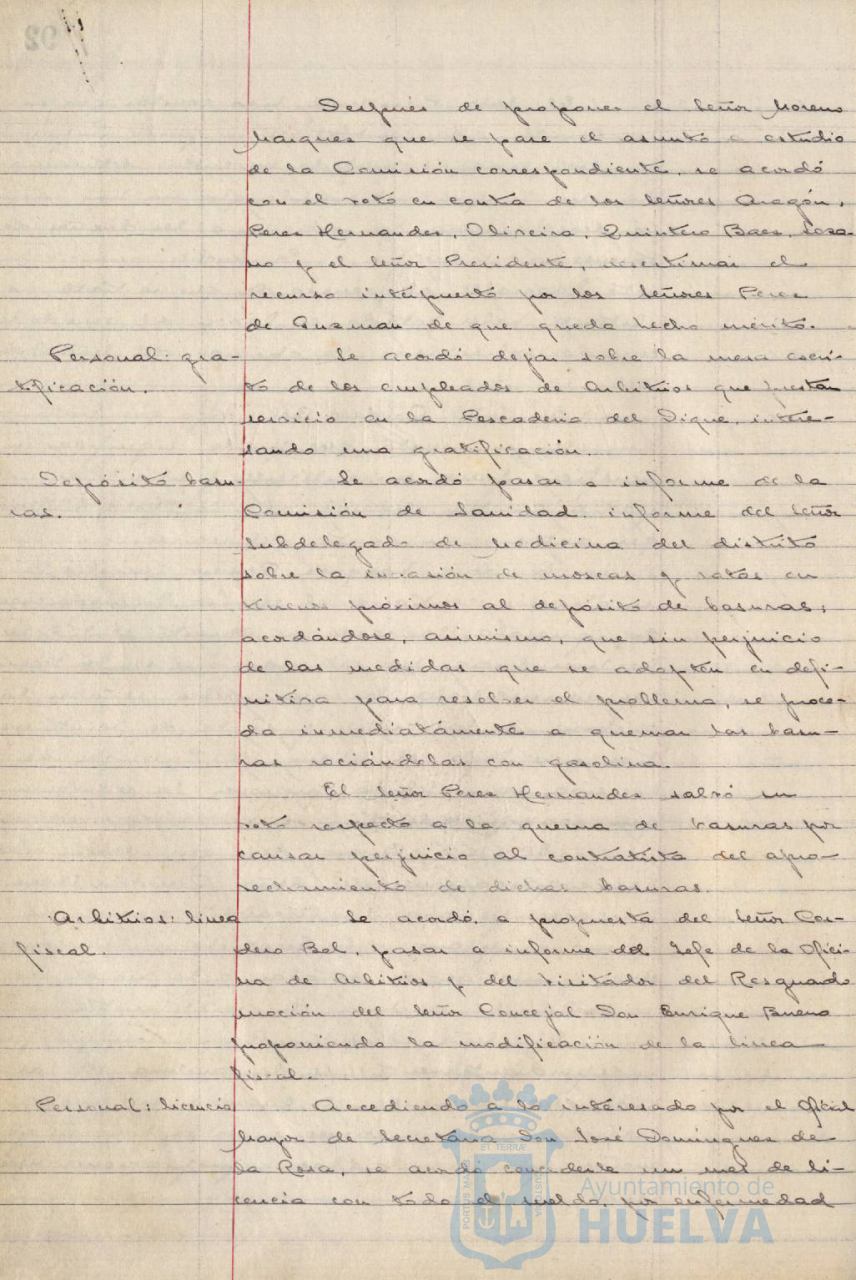 92
Después de proponer el Señor Moreno
Marquez que se pase el asunto a estudio
de la Comisión correspondiente, se acordó
con el voto en contra de los Señores Aragón,
Perez Hernandez, Oliveira, Quintero Baez, Loza-
no y el Señor Presidente, desestimar el
recurso interpuesto por los Señores Perez
de Guzman de que queda hecho mérito.
Personal: gra-
tificación.
Se acordó dejar sobre la mesa escri-
to de los empleados de Arbitrios que prestan
servicio en la Pescaderia del Dique, intere-
sando una gratificación.
Depósito basu-
ras.
Se acordó pasar a informe de la
Comisión de Sanidad informe del Señor
Subdelegado de Medicina del distrito
sobre la invasión de moscas y ratas en
terrenos próximos al depósito de basuras;
acordándose, asimismo, que sin perjuicio
de las medidas que se adopten en defi-
nitiva para resolver el problema, se proce-
da inmediatamente a quemar las basu-
ras rociándolas con gasolina.
El Señor Perez Hernandez salvó su
voto respecto a la quema de basuras por
causar perjuicio al contratista del apro-
vechamiento de dichas basuras.
Arbitrios: linea
fiscal.
Se acordó, a propuesta del Señor Cor-
dero Bel, pasar a informe del Jefe de la Ofici-
na de Arbitrios y del Visitador del Resguardo
moción del Señor Concejal Don Enrique Bueno
proponiendo la modificación de la linea
fiscal.
Personal: licencia
Accediendo a lo interesado por el Oficial
Mayor de Secretaria Don José Dominguez de
la Rosa, se acordó concederle un mes de li-
cencia con todo el sueldo, por enfermedad
PORTUS MARIS
ET TERRÆ
CUSTODIA
Ayuntamiento de
HUELVA